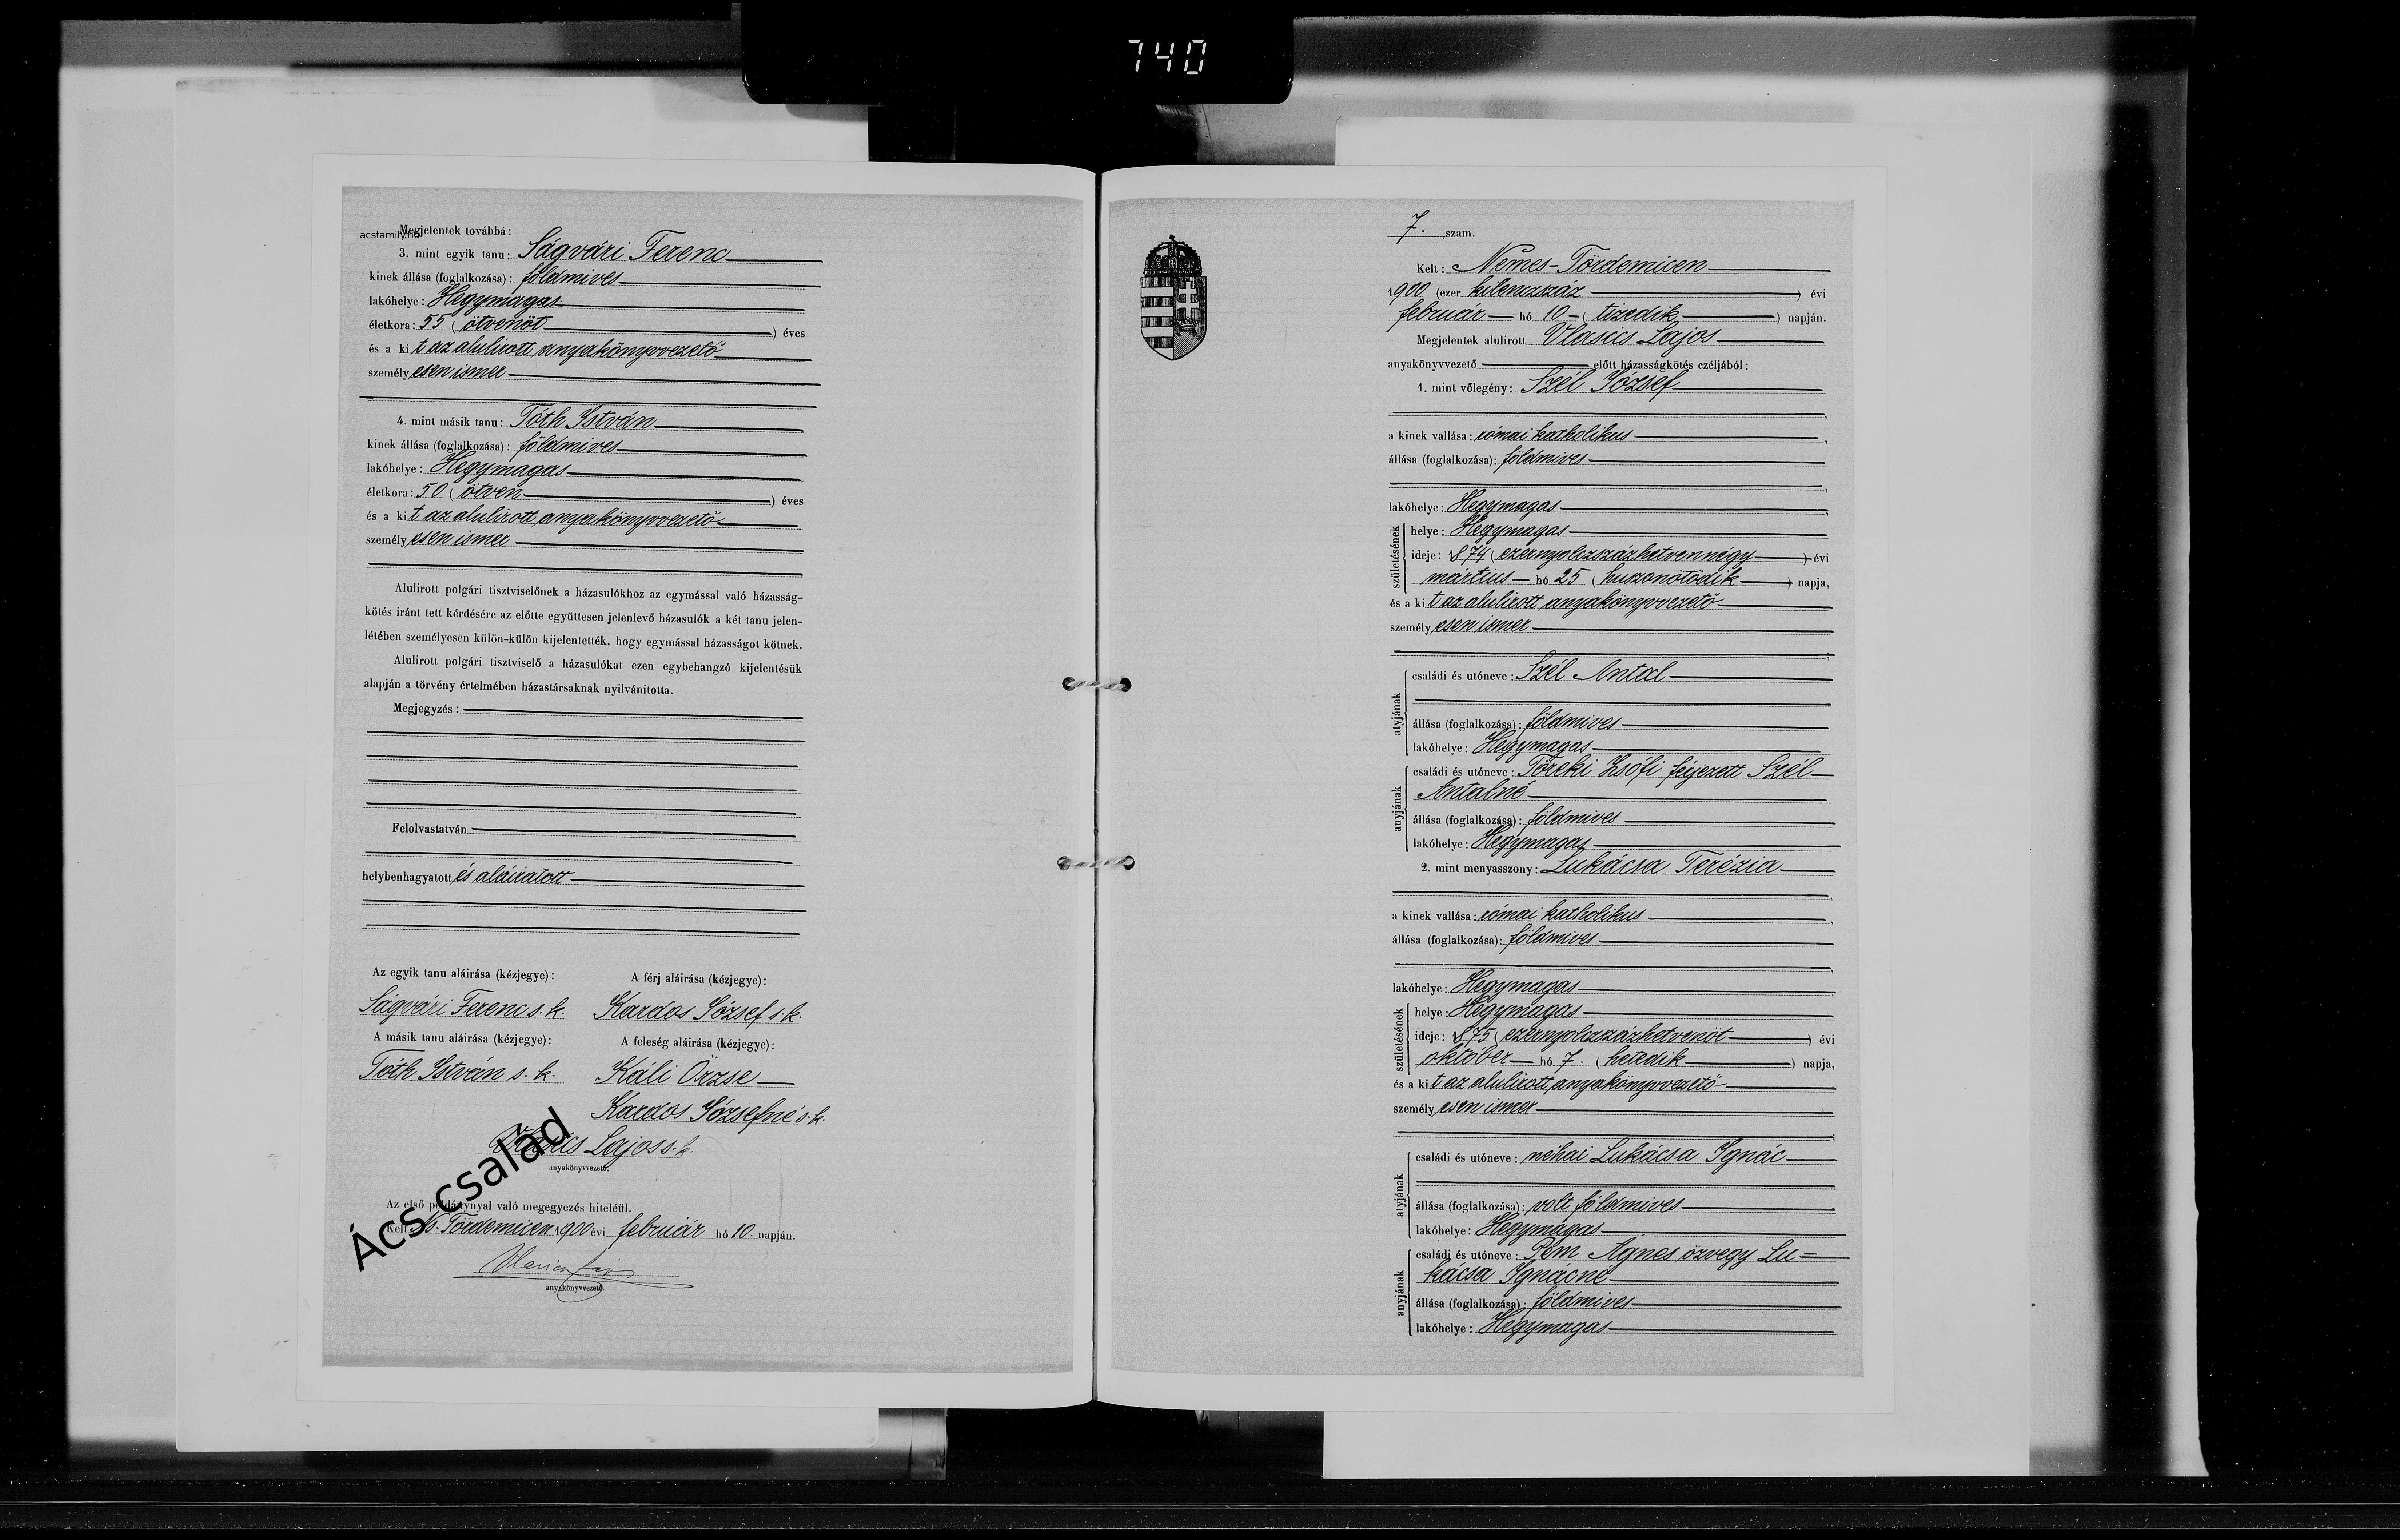 740
acsfamily.hu
Megjelentek továbbá:
3. mint egyik tanu: Ságvári Ferenc
kinek állása (foglalkozása): földmives
lakóhelye: Hegymagas
életkora: 55 (ötvenöt) éves
és a kit az alulirott anyakönyvvezető
személyesen ismer
4. mint másik tanu: Tóth István
kinek állása (foglalkozása): földmives
lakóhelye: Hegymagas
életkora: 50 (ötven) éves
és a kit az alulirott anyakönyvvezető
személyesen ismer
Alulirott polgári tisztviselőnek a házasulókhoz az egymással való házasság-
kötés iránt tett kérdésére az előtte együttesen jelenlevő házasulók a két tanu jelen-
létében személyesen külön-külön kijelentették, hogy egymással házasságot kötnek.
Alulirott polgári tisztviselő a házasulókat ezen egybehangzó kijelentésük
alapján a törvény értelmében házastársaknak nyilvánitotta.
Megjegyzés:
Felolvastatván
helybenhagyatott és aláiratott
Az egyik tanu aláirása (kézjegye): A férj aláirása (kézjegye):
Ságvári Ferenc s. k. Kardos József s. k.
A másik tanu aláirása (kézjegye): A feleség aláirása (kézjegye):
Tóth István s. k. Káli Örzse
Kardos Józsefné s. k.
Vlasics Lajos s. k.
anyakönyvvezető.
Ács család
Az első példánynyal való megegyezés hiteléül.
Kelt N. Tördemicen 1900 évi február hó 10. napján.
Vlasics Lajos
anyakönyvvezető.
7. szam.
Kelt: Nemes-Tördemicen
1900 (ezer kilenczszáz) évi
február hó 10 (tizedik) napján.
Megjelentek alulirott Vlasics Lajos
anyakönyvvezető előtt házasságkötés czéljából:
1. mint vőlegény: Szél József
a kinek vallása: római katholikus
állása (foglalkozása): földmives
lakóhelye: Hegymagas
születésének
helye: Hegymagas
ideje: 1874 (ezernyolczszázhetvennégy) évi
március hó 25 (huszonötödik) napja,
és a kit az alulirott anyakönyvvezető
személyesen ismer
atyjának
családi és utóneve: Szél Antal
állása (foglalkozása): földmives
lakóhelye: Hegymagas
anyjának
családi és utóneve: Töreki Zsófi férjezett Szél
Antalné
állása (foglalkozása): földmives
lakóhelye: Hegymagas
2. mint menyasszony: Lukácsa Terézia
a kinek vallása: római katholikus
állása (foglalkozása): földmives
lakóhelye: Hegymagas
születésének
helye: Hegymagas
ideje: 1875 (ezernyolczszázhetvenöt) évi
október hó 7. (hetedik) napja,
és a kit az alulirott anyakönyvvezető
személyesen ismer
atyjának
családi és utóneve: néhai Lukácsa Ignác
állása (foglalkozása): volt földmives
lakóhelye: Hegymagas
anyjának
családi és utóneve: Pém Agnes özvegy Lu=
kácsa Ignácné
állása (foglalkozása): földmives
lakóhelye: Hegymagas